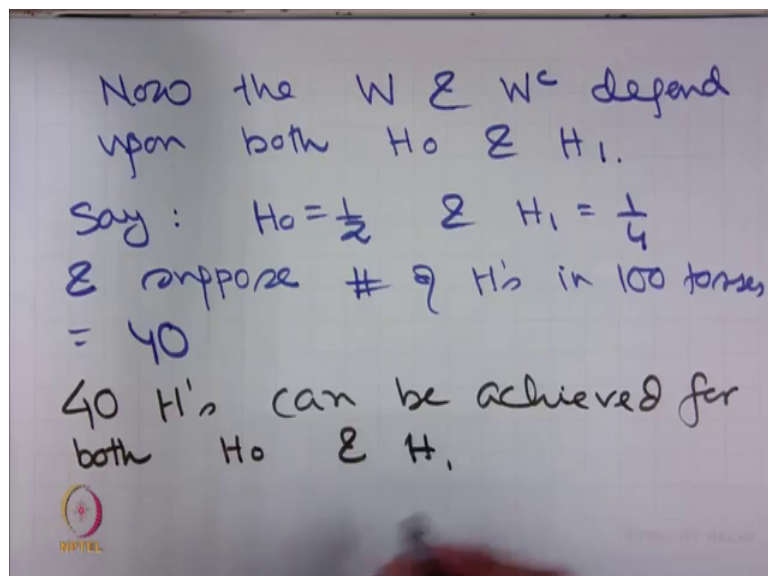 Now the W & Wᶜ depend
upon both H₀ & H₁.
Say : H₀ = 1/2 & H₁ = 1/4
& suppose # of H's in 100 tosses,
= 40
40 H's can be achieved for
both H₀ & H₁
NPTEL